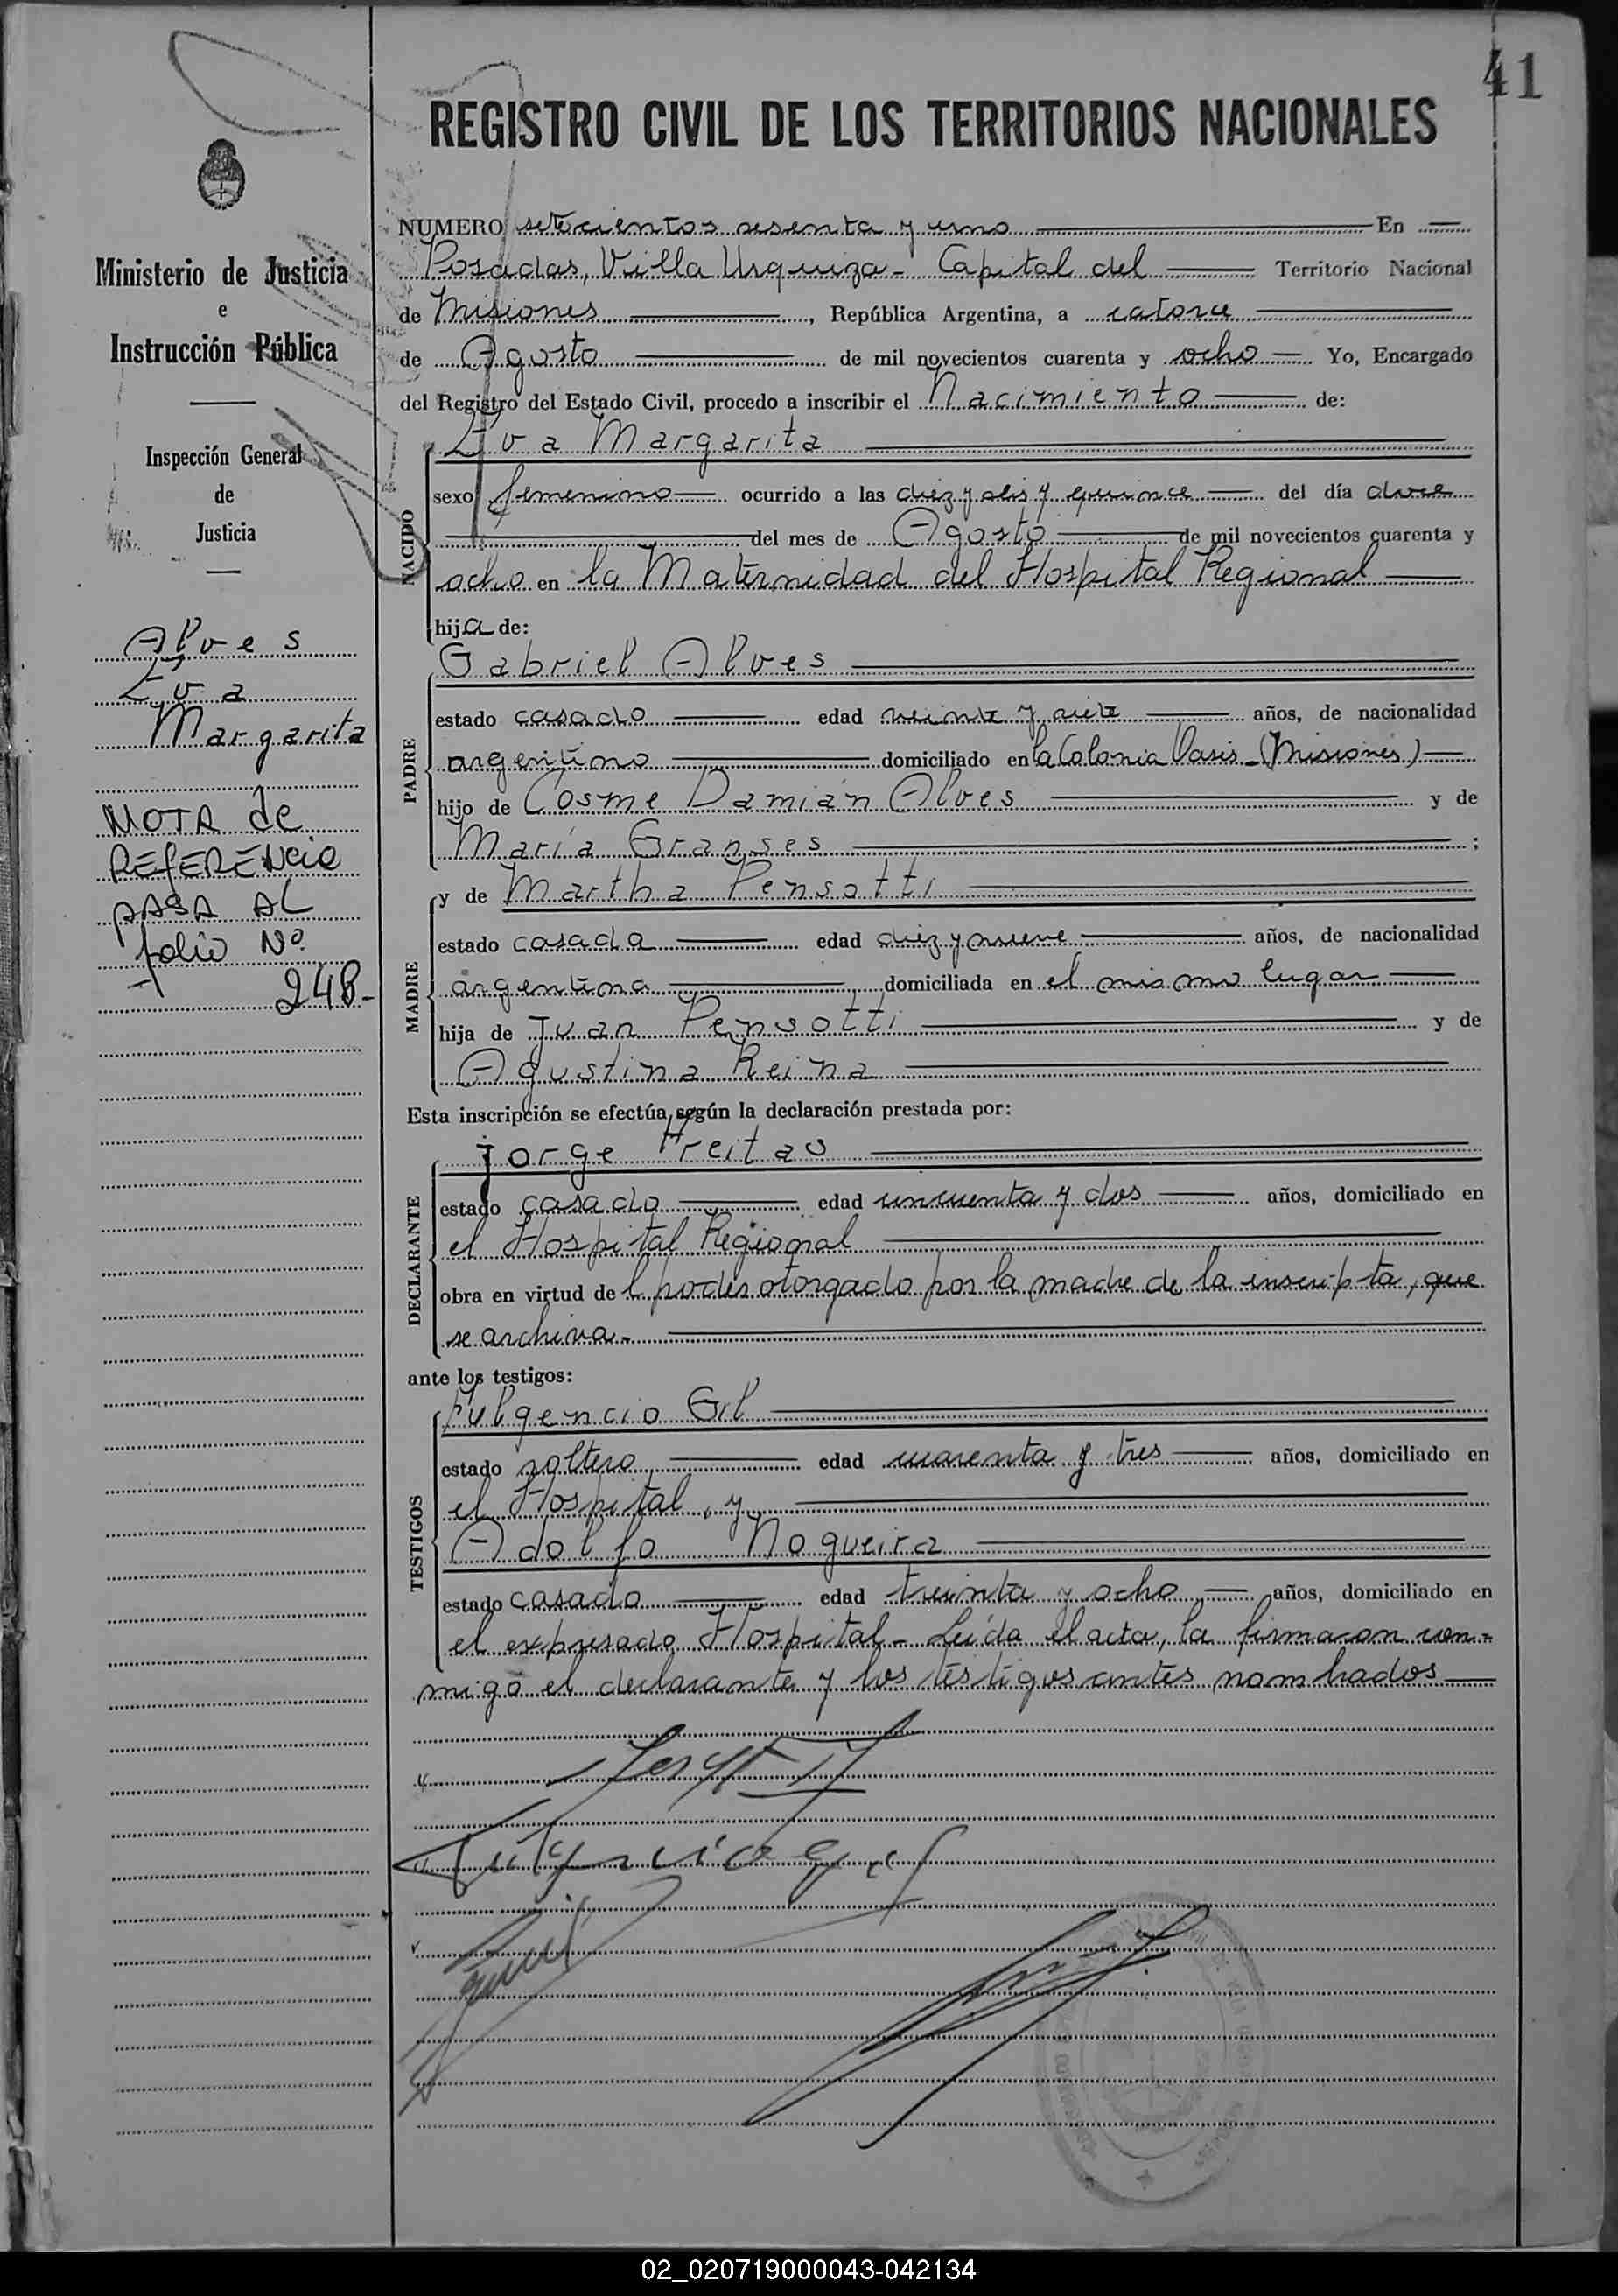 41
REGISTRO CIVIL DE LOS TERRITORIOS NACIONALES
Ministerio de Justicia
e
Instrucción Pública
Inspección General
de
Justicia
Alves
Eva
Margarita
NOTA de
REFERENCIA
PASA AL
folio Nº
248-
NUMERO setecientos sesenta y uno En
Posadas, Villa Urquiza - Capital del Territorio Nacional
de Misiones, República Argentina, a catorce
de Agosto de mil novecientos cuarenta y ocho Yo, Encargado
del Registro del Estado Civil, procedo a inscribir el Nacimiento de:
NACIDO
Eva Margarita
sexo femenino ocurrido a las diez y seis y quince del día doce
del mes de Agosto de mil novecientos cuarenta y
ocho en la Maternidad del Hospital Regional
hija de:
PADRE
Gabriel Alves
estado casado edad veinte y siete años, de nacionalidad
argentino domiciliado en la Colonia Oasis - (Misiones)
hijo de Cosme Damián Alves y de
María Granses ;
MADRE
y de Martha Pensotti
estado casada edad diez y nueve años, de nacionalidad
argentina domiciliada en el mismo lugar
hija de Juan Pensotti y de
Agustina Reina
Esta inscripción se efectúa según la declaración prestada por:
DECLARANTE
Jorge Freitas
estado casado edad cincuenta y dos años, domiciliado en
el Hospital Regional
obra en virtud del poder otorgado por la madre de la inscripta, que
se archiva.-
ante los testigos:
TESTIGOS
Fulgencio Gil
estado soltero edad cuarenta y tres años, domiciliado en
el Hospital, y
Adolfo Nogueira
estado casado edad treinta y ocho años, domiciliado en
el expresado Hospital - Leída el acta, la firmaron con-
migo el declarante y los testigos antes nombrados
02_020719000043-042134